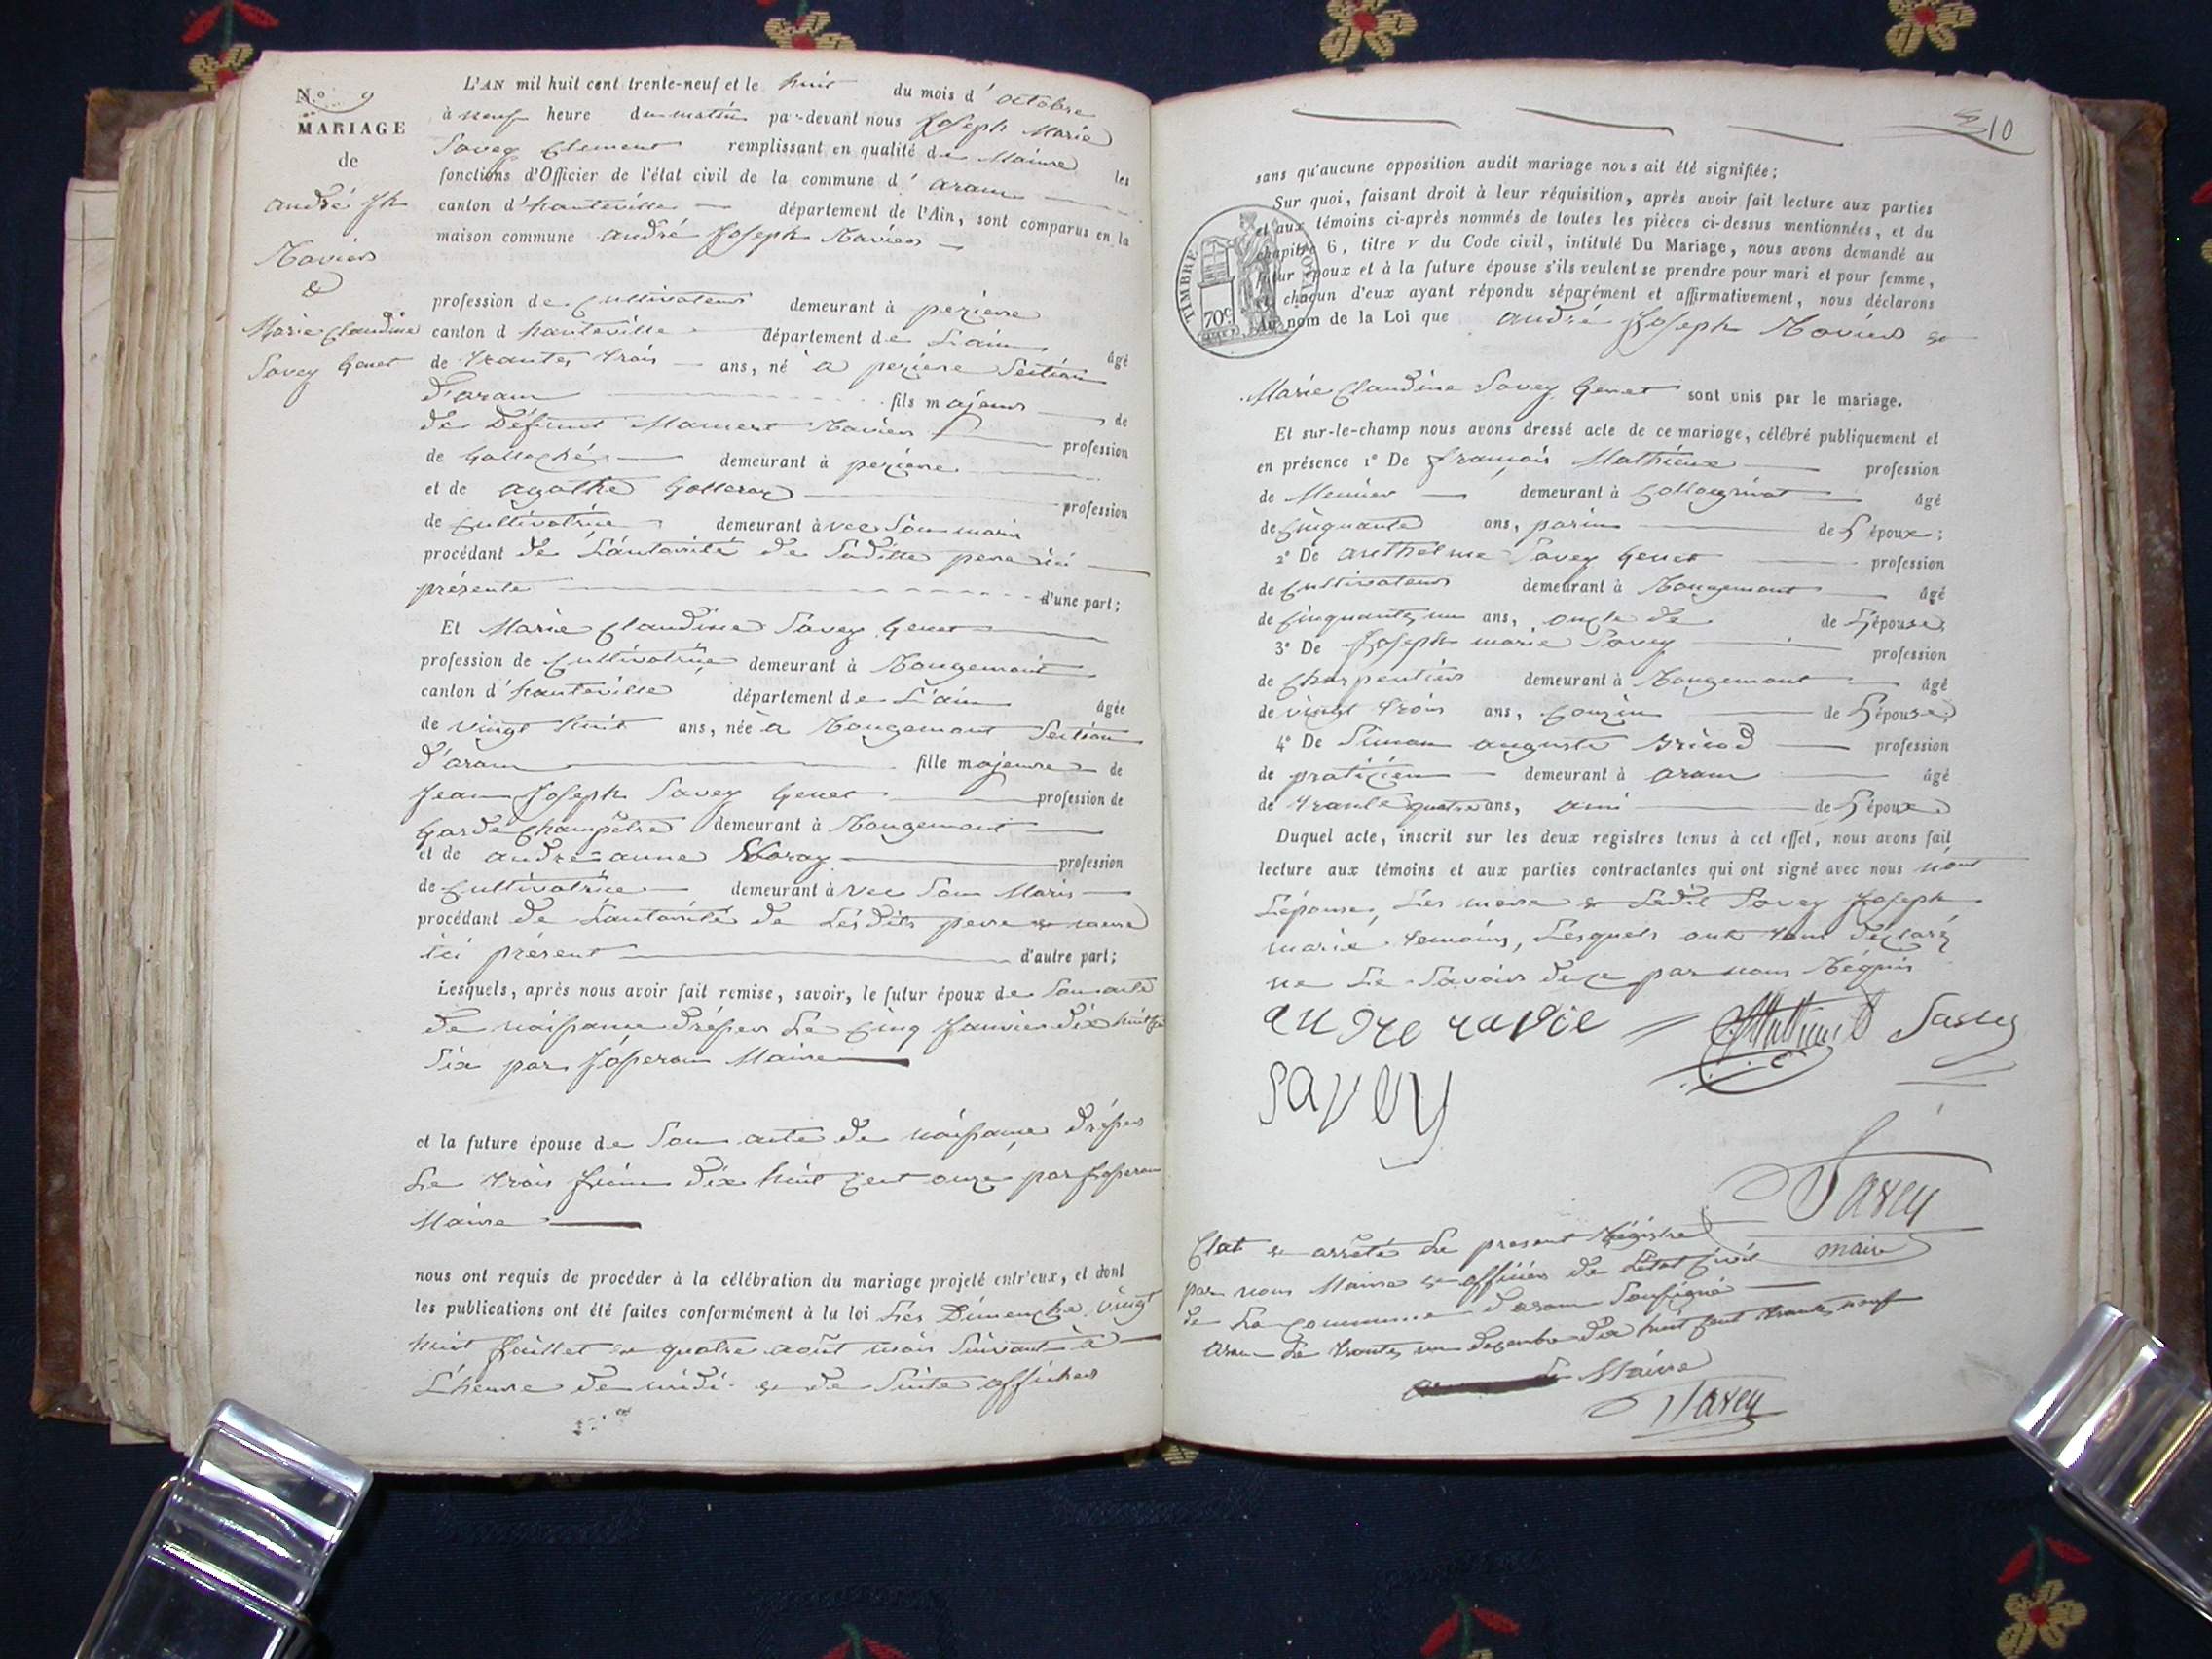 N.° 9
MARIAGE
de
André Jh
Ravier
&
Marie Claudine
Savey Genet
L'AN mil huit cent trente-neuf et le huit du mois d' octobre
à neuf heure du matin par-devant nous Joseph Marie
Savey Clement remplissant en qualité de Maire les
fonctions d'Officier de l'état civil de la commune d' aram
canton d'hauteville département de l'Ain, sont comparus en la
maison commune andré Joseph Ravier
profession de Cultivateur demeurant à peziere
canton d hauteville département de L'ain âgé
de trantes trois ans, né a peziere Section
d'aram fils majeur de
de Défunt Mamert Ravier profession
de demeurant à peziere
et de agathe profession
de Cultivatrice demeurant avec Son mari
procédant de L'autorité de Saditte pere ici
présente d'une part;
Et Marie Claudine Savey Genet
profession de Cultivatrice demeurant à Rougemont
canton d'hauteville département de L'ain âgée
de vingt huit ans, née a Rougemont Section
d'aram fille majeure de
Jean Joseph Savey Genet profession de
Garde Champêtre demeurant à Rougemont
et de andré anne profession
de Cultivatrice demeurant avec Son Maris
procédant de L'autorité de Lésdits pere & mere
ici présent d'autre part;
Lesquels, après nous avoir fait remise, savoir, le futur époux de Son acte
de naissance drésser Le Cinq Janvier dix huit Cent
Six par Jóseran Maire
et la future épouse de Son acte de naissance drésser
Le trois Juin dix huit Cent onze par Joseran
Maire
nous ont requis de procéder à la célébration du mariage projeté entr'eux, et dont
les publications ont été faites conformément à la loi Les Dimenche vingt
huit Juillet & quatre août mois Suivant à
L'heure de midi & de Suite afficher
10
sans qu'aucune opposition audit mariage nous ait été signifiée;
Sur quoi, faisant droit à leur réquisition, après avoir fait lecture aux parties
et aux témoins ci-après nommés de toutes les pièces ci-dessus mentionnées, et du
chapitre 6, titre V du Code civil, intitulé Du Mariage, nous avons demandé au
futur époux et à la future épouse s'ils veulent se prendre pour mari et pour femme,
et chacun d'eux ayant répondu séparément et affirmativement, nous déclarons
au nom de la Loi que andré Joseph Ravier &
TIMBRE ROYAL
70c
Marie Claudine Savey Genet sont unis par le mariage.
Et sur-le-champ nous avons dressé acte de ce mariage, célébré publiquement et
en présence 1° De françois Mathieux profession
de Meunier demeurant à âgé
de Cinquante ans, parin de L'époux;
2° De anthelme Savey Genet profession
de Cultivateur demeurant à Rougemont âgé
de Cinquantes un ans, oncle de de L'épouse
3° De Joseph marie Savey profession
de Charpentier demeurant à Rougemont âgé
de vingt trois ans, Couzin de L'épouse
4° De Simon auguste Bricod profession
de praticien demeurant à aram âgé
de trante quatre ans, ami de L'époux
Duquel acte, inscrit sur les deux registres tenus à cet effet, nous avons fait
lecture aux témoins et aux parties contractantes qui ont signé avec nous non
L'épouse, Les mere & Ledit Savey Joseph
marie témoins, Lesquels ont tous déclaré
ne Le Savoir de ce par nous Réquis
andre ravie Savey
Savey
Savey
maire
Clot & arrêté Le present Régistre
par nous Maire & officier de L'état Civil
de La commune d'aram Soussigné
Aram Le trantes un decembre dix huit Cent trante neuf
Le Maire
Savey